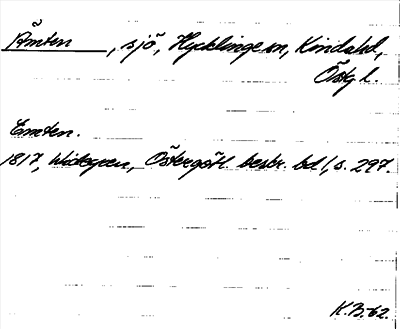 Ämten, sjö, Hycklinge sn, Kinds hd,
Östg l.
Emten.
1817, Widegren, Östergötl. beskr. bd 1, s. 297.
K.B. 62.